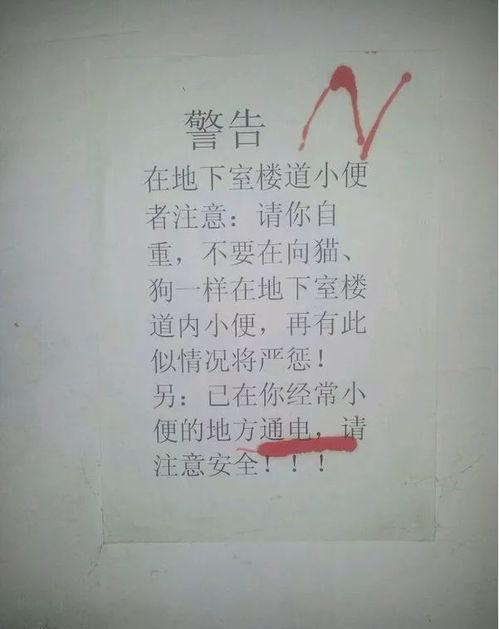 警告
在地下室楼道小便
者注意：请你自
重，不要在向猫、
狗一样在地下室楼
道内小便，再有此
似情况将严惩！
另：已在你经常小
便的地方通电，请
注意安全！！！